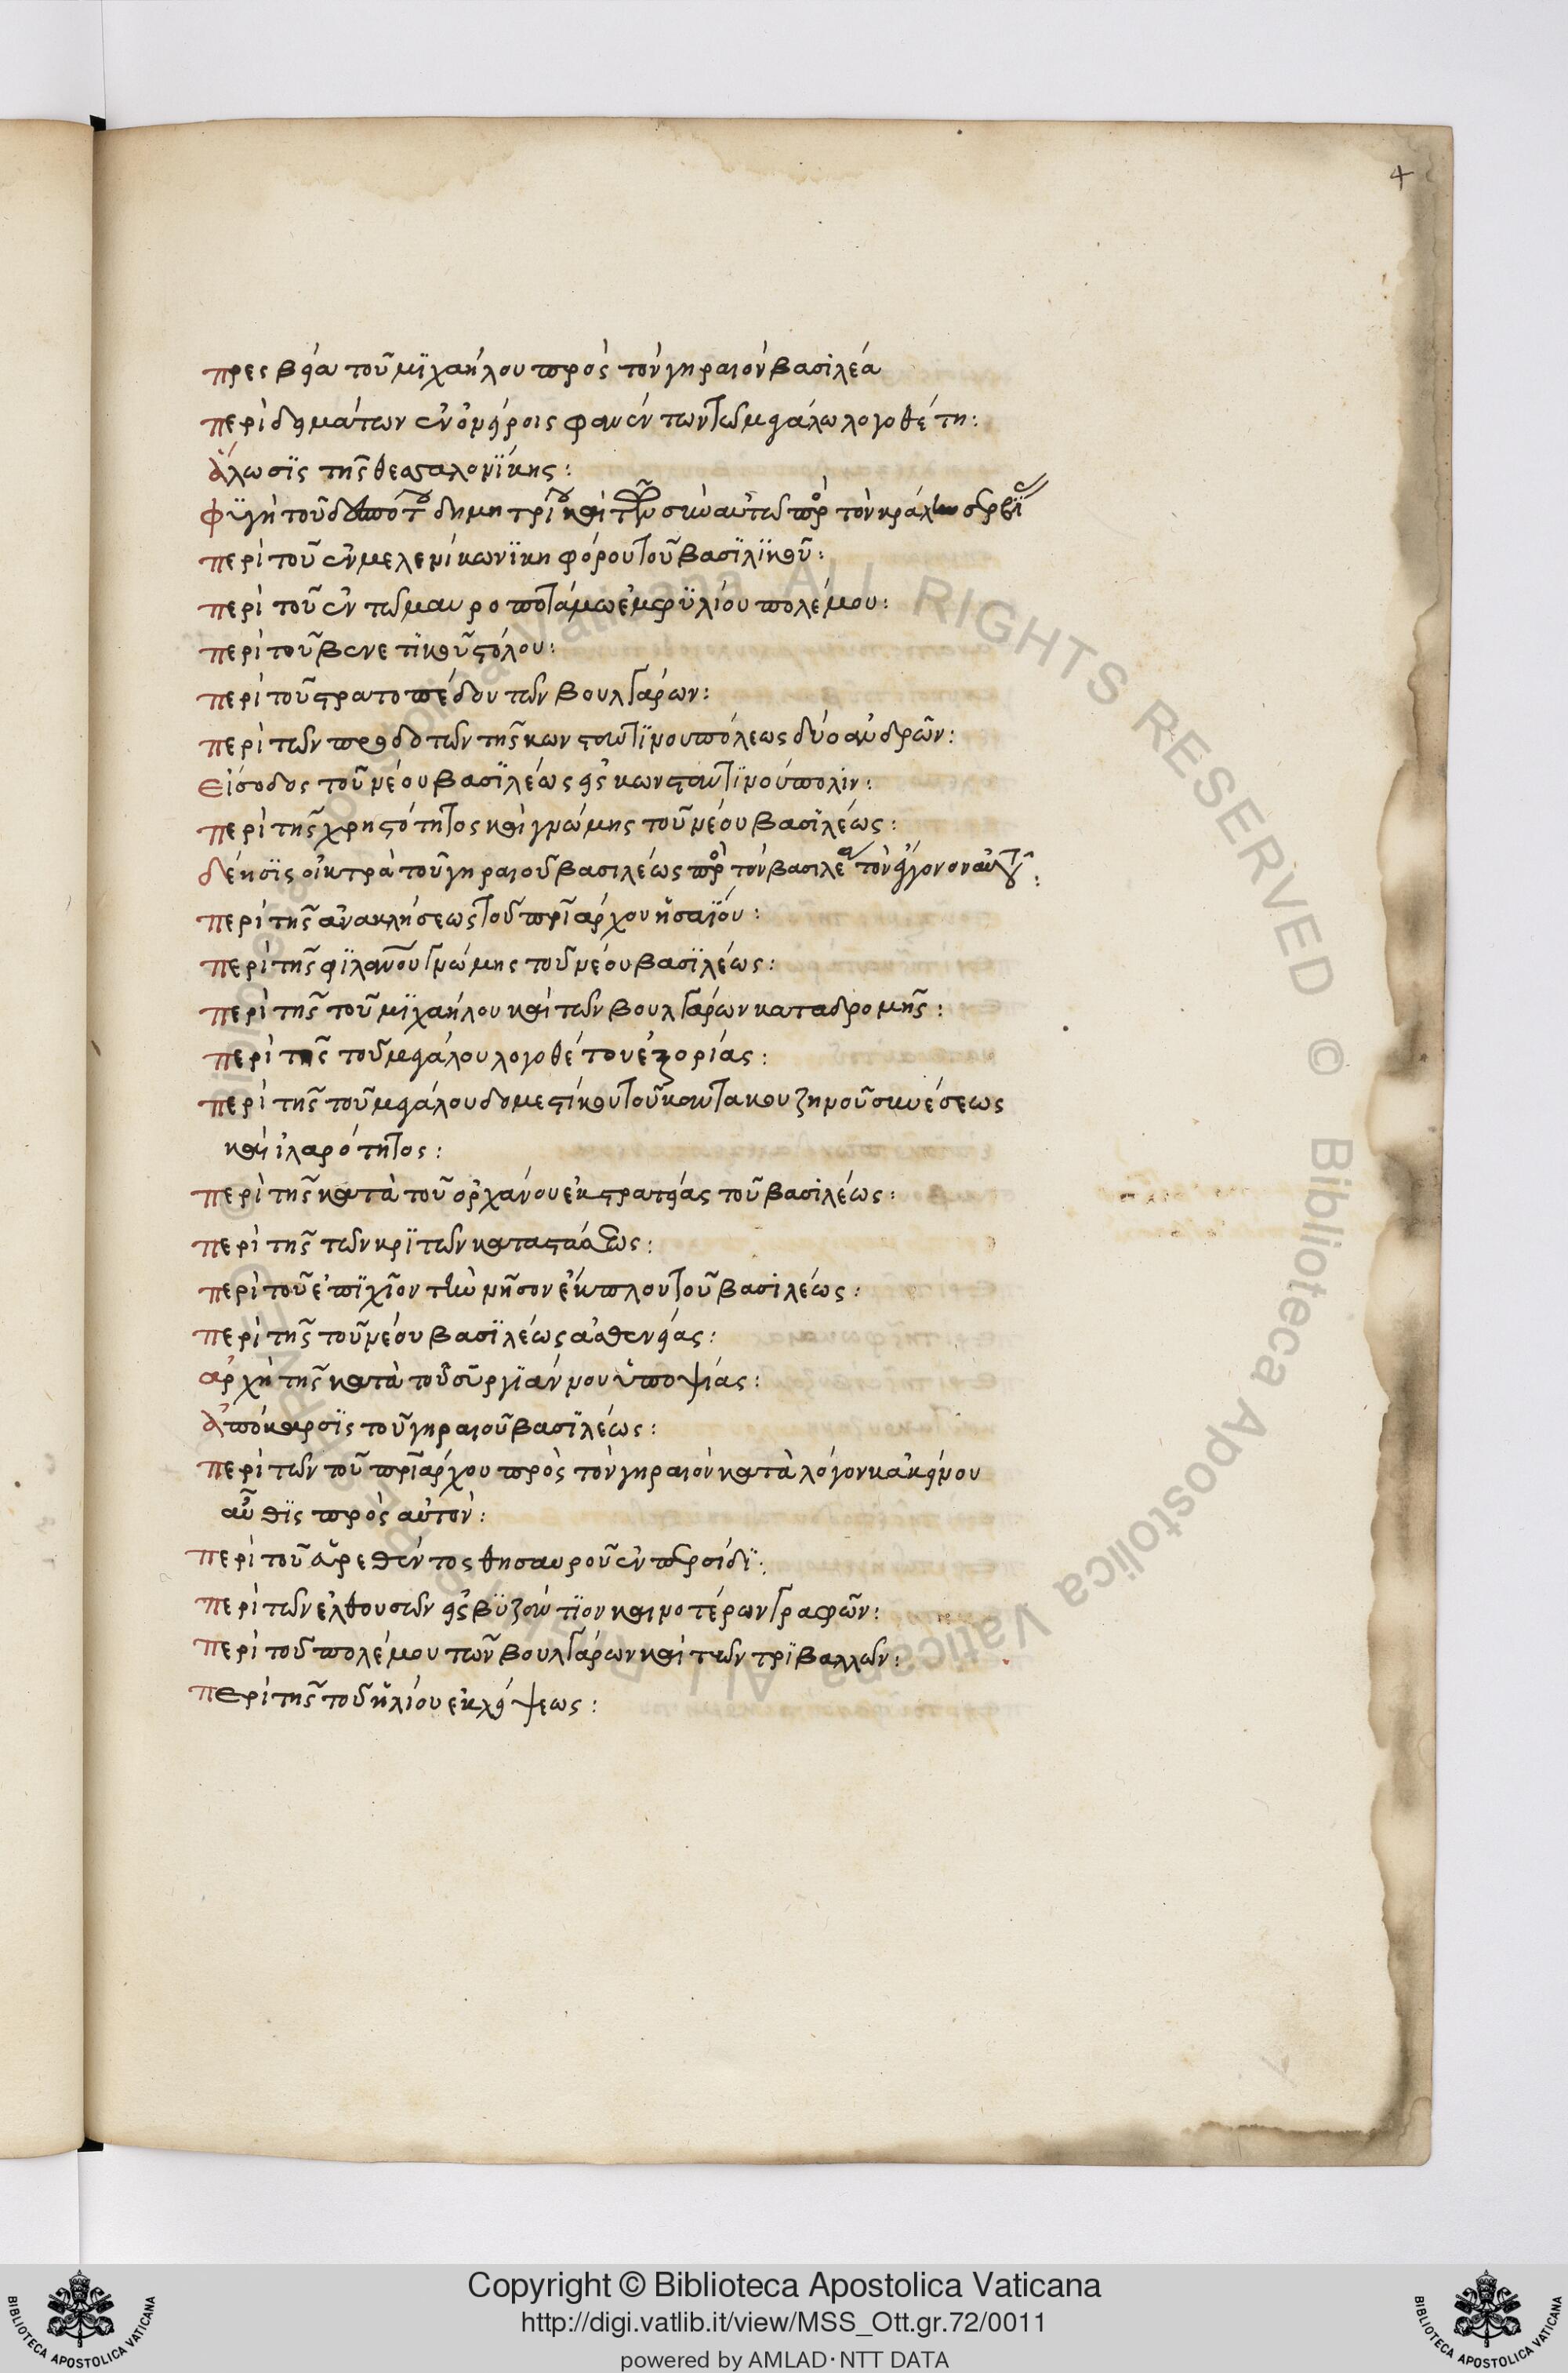 4
πρεσβεία τοῦ μϊχαήλου πρὸς τὸν γηραιὸν βασιλέα
περὶ δειμάτων ἐν ὀνείροις φανέντων τῶ μεγάλω λογοθέτη:
ἅλωσϊς τῆς θεσσαλονίκης:
φϋγὴ τοῦ δεσπότου δημητρίου καὶ τῶν σὺν αὐτῶ πρὸς τὸν κράλην σερβίας
περὶ τοῦ ἐν μελενίκω νϊκηφόρου τοῦ βασϊλϊκοῦ:
περὶ τοῦ ἐν τῶ μαυροποτάμω ἐμφϋλίου πολέμου:
περὶ τοῦ βενετϊκοῦ στόλου:
περὶ τοῦ στρατοπέδου τῶν βουλγάρων:
περὶ τῶν προδοτῶν τῆς κωνσταντϊνουπόλεως δύο ἀνδρῶν:
εἴσοδος τοῦ νέου βασϊλέως εἰς κωνσταντϊνούπολϊν:
περὶ τῆς χρηστότητος καὶ γνώμης τοῦ νέου βασϊλέως:
δέησϊς οἰκτρὰ τοῦ γηραιοῦ βασιλέως πρὸς τὸν βασιλέα τὸν ἔγγονον αὐτοῦ:
περὶ τῆς ἀνακλήσεως τοῦ πριάρχου ἡσαΐου:
περὶ τῆς φϊλανου γνώμης τοῦ νέου βασϊλέως:
περὶ τῆς τοῦ μϊχαήλου καὶ τῶν βουλγάρων καταδρομῆς:
περὶ τῆς τοῦ μεγάλου λογοθέτου ἐξορίας:
περὶ τῆς τοῦ μεγάλου δομεστίκου τοῦ καντακουζηνοῦ συνέσεως
καὶ ἱλαρότητος:
περὶ τῆς κατὰ τοῦ ὀρχάνου ἐκστρατείας τοῦ βασιλέως:
περὶ τῆς τῶν κρϊτῶν καταστάσεως:
περὶ τοῦ ἐπῒ χῖον τὴν νῆσον ἔκπλου τοῦ βασιλέως:
περὶ τῆς τοῦ νέου βασϊλέως ἀσθενείας:
ἀρχὴ τῆς κατὰ τοῦ συργϊάννου ὑποψίας:
ἀπόκαρσϊς τοῦ γηραιοῦ βασϊλέως:
περὶ τῶν τοῦ πριάρχου πρὸς τὸν γηραιὸν κατὰ λόγον κἀκείνου
αὖθϊς πρὸς αὐτὸν:
περὶ τοῦ εὑρεθέντος θησαυροῦ ἐν περσίδϊ:
περὶ τῶν ἐλθουσῶν εἰς βϋζάντϊον καινοτέρων γραφῶν:
περὶ τοῦ πολέμου τῶν βουλγάρων καὶ τῶν τρϊβαλλῶν:
περὶ τῆς τοῦ ἡλίου ἐκλείψεως:
Copyright © Biblioteca Apostolica Vaticana
http://digi.vatlib.it/view/MSS_Ott.gr.72/0011
powered by AMLAD·NTT DATA